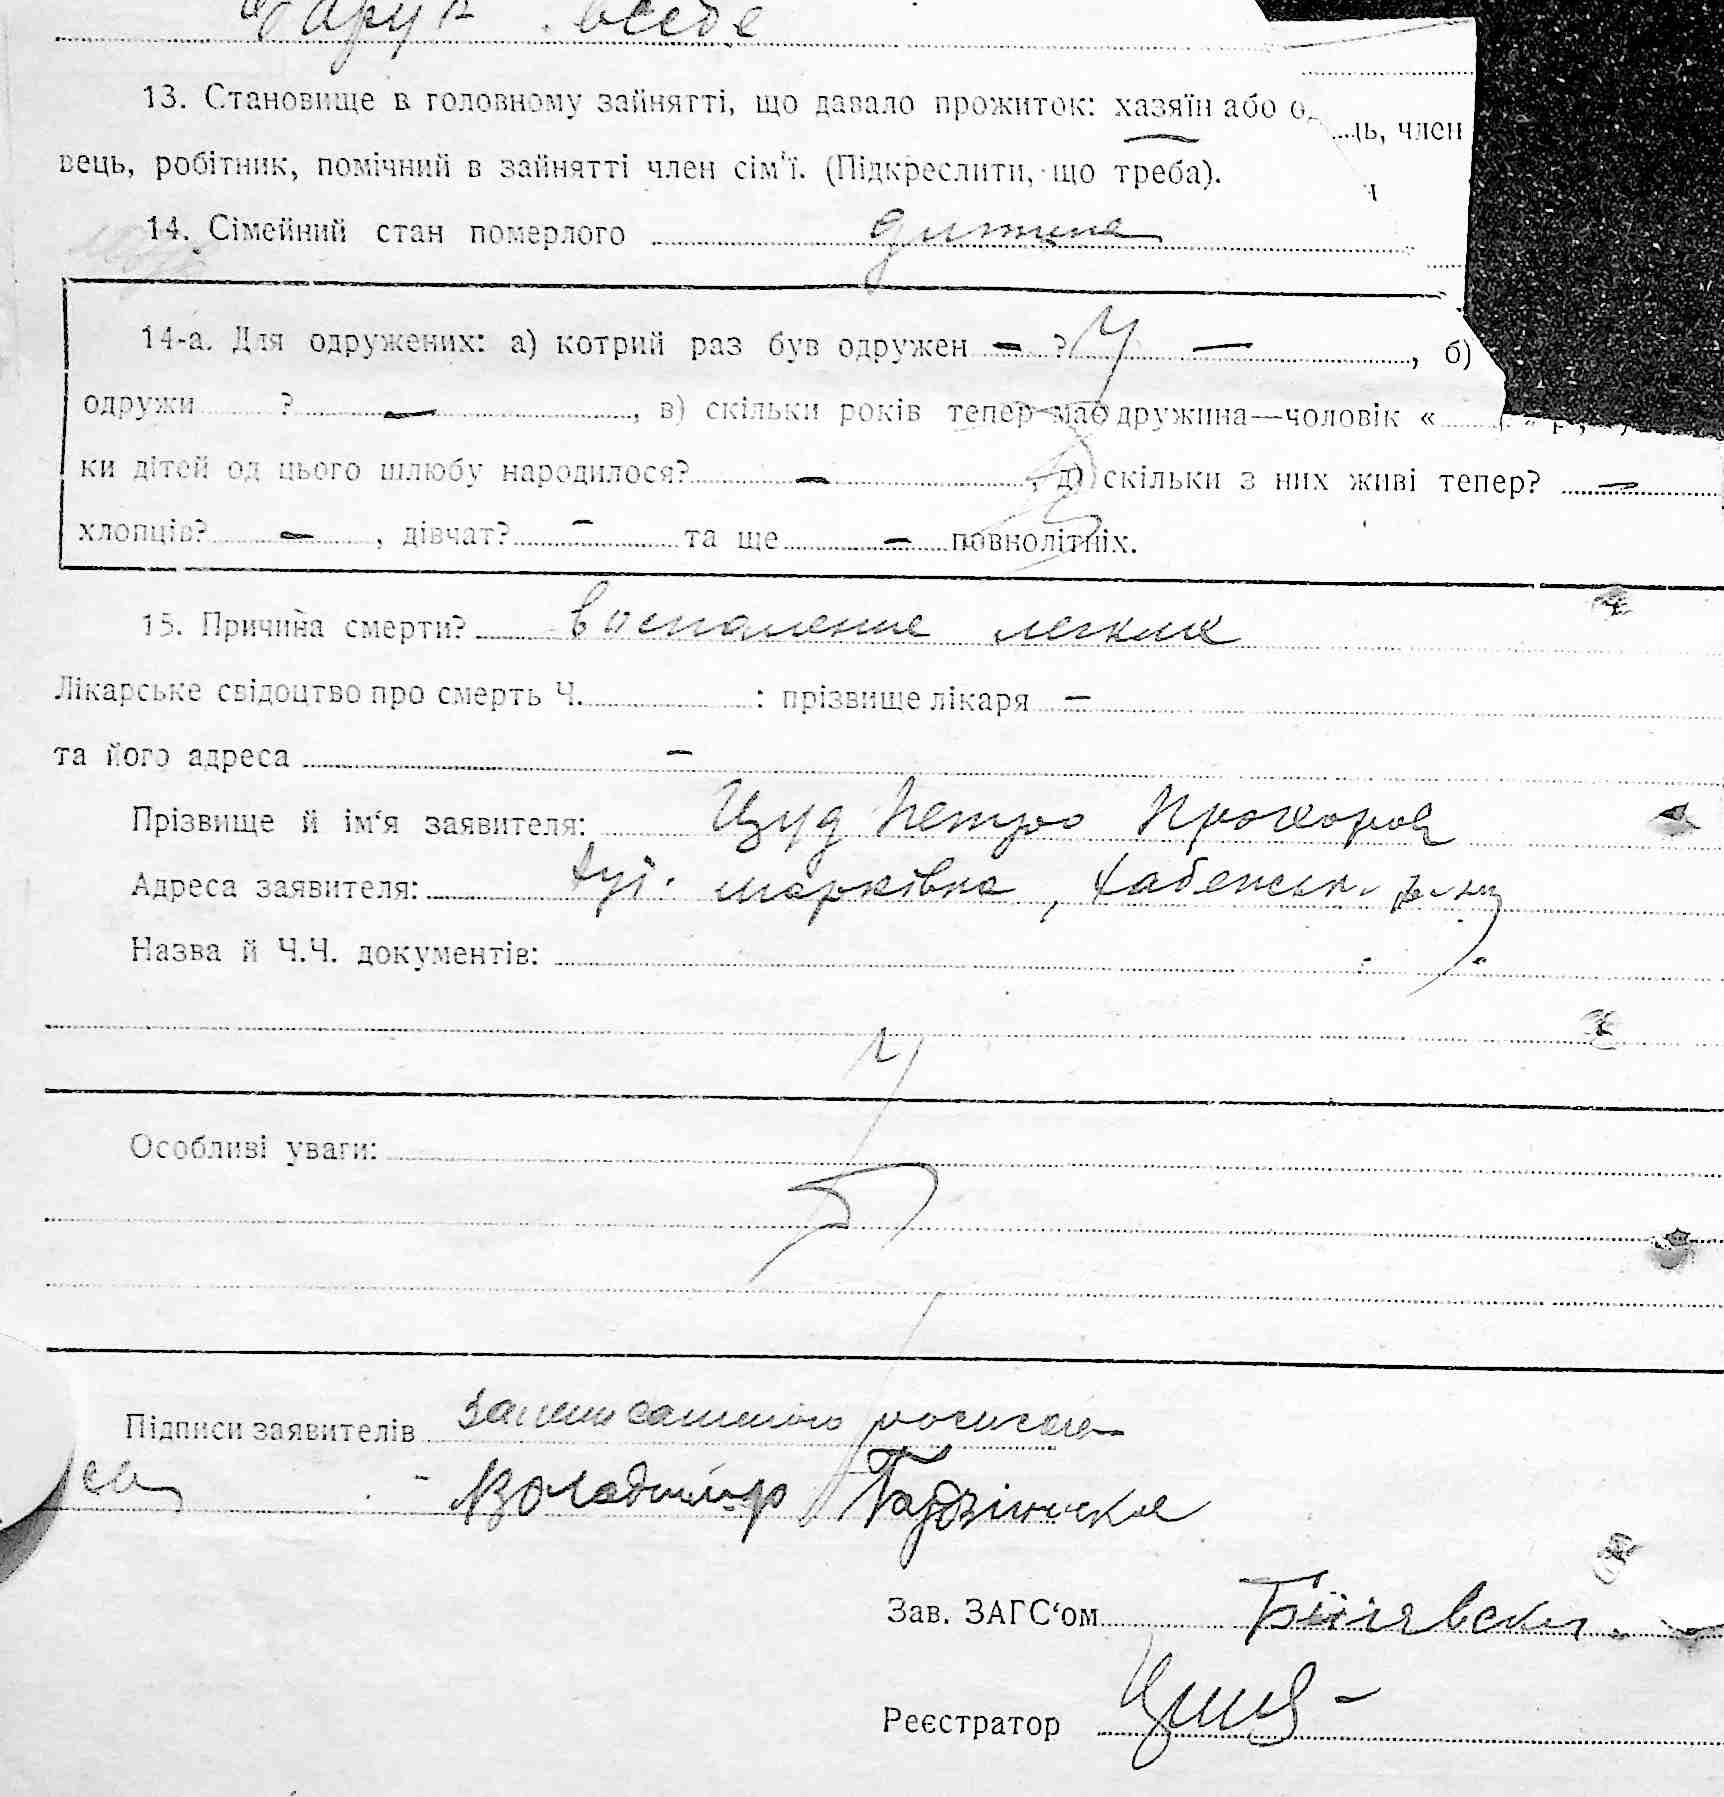 13. Становище в головному зайнятті, що давало прожиток: хазяїн або о ...ць, член
вець, робітник, помічний в зайнятті член сім'ї. (Підкреслити, що треба).
14. Сімейний стан померлого дитина
14-а. Для одружених: а) котрий раз був одружен — ? —, б)
одружи ? —, в) скільки років тепер має дружина—чоловік «
ки дітей од цього шлюбу народилося? —, д) скільки з них живі тепер? —
хлопців? —, дівчат? — та ще — повнолітніх.
15. Причина смерти? воспаление легких
Лікарське свідоцтво про смерть Ч. : прізвище лікаря —
та його адреса —
Прізвище й ім'я заявителя: Петро Прохоров
Адреса заявителя: Марківка, Хабенськ. р-ну
Назва й Ч.Ч. документів:
Особливі уваги:
Підписи заявителів
Володимир
Зав. ЗАГС'ом
Реєстратор